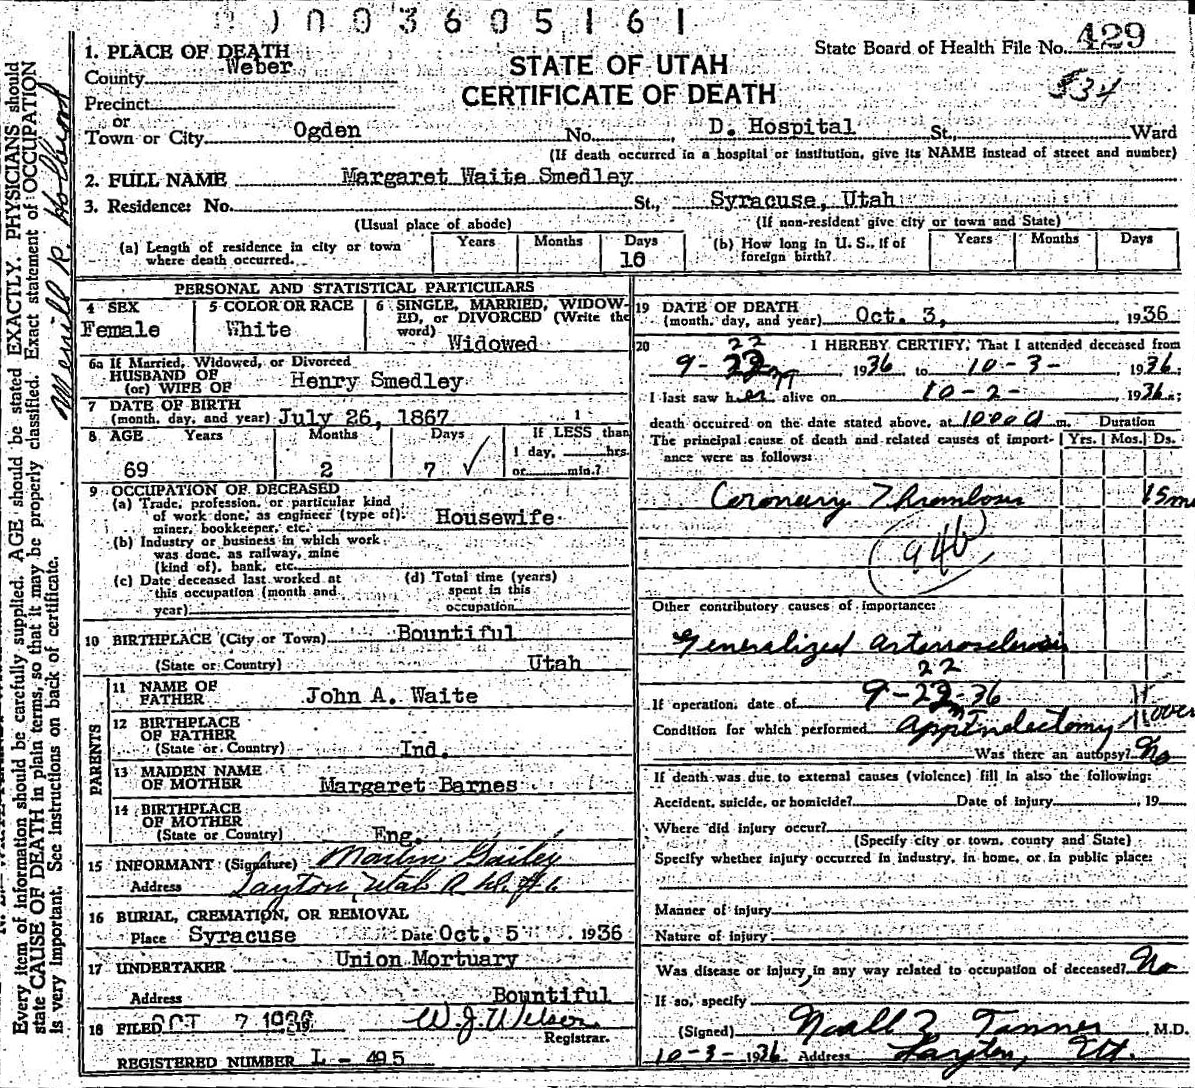 003605161
State Board of Health File No. 429
534
STATE OF UTAH
CERTIFICATE OF DEATH
1. PLACE OF DEATH
County Weber
Precinct
or
Town or City Ogden No. D. Hospital St., Ward
(If death occurred in a hospital or institution, give its NAME instead of street and number)
2. FULL NAME Margaret Waite Smedley
3. Residence: No. St., Syracuse, Utah
(Usual place of abode) (If non-resident give city or town and State)
(a) Length of residence in city or town where death occurred. Years Months Days 10
(b) How long in U. S., if of foreign birth? Years Months Days
PERSONAL AND STATISTICAL PARTICULARS
4 SEX Female
5 COLOR OR RACE White
6 SINGLE, MARRIED, WIDOWED, or DIVORCED (Write the word) Widowed
6a If Married, Widowed, or Divorced
HUSBAND OF
(or) WIFE OF Henry Smedley
7 DATE OF BIRTH
(month, day, and year) July 26, 1867
8 AGE Years Months Days If LESS than
69 2 7 ✓ 1 day, hrs.
or min.?
9 OCCUPATION OF DECEASED
(a) Trade, profession, or particular kind
of work done, as engineer (type of),
miner, bookkeeper, etc. Housewife
(b) Industry or business in which work
was done, as railway, mine
(kind of), bank, etc.
(c) Date deceased last worked at
this occupation (month and
year)
(d) Total time (years)
spent in this
occupation
10 BIRTHPLACE (City or Town) Bountiful
(State or Country) Utah
PARENTS
11 NAME OF
FATHER John A. Waite
12 BIRTHPLACE
OF FATHER
(State or Country) Ind.
13 MAIDEN NAME
OF MOTHER Margaret Barnes
14 BIRTHPLACE
OF MOTHER
(State or Country) Eng.
15 INFORMANT (Signature) Gailey
Address Layton Utah
16 BURIAL, CREMATION, OR REMOVAL
Place Syracuse Date Oct. 5 1936
17 UNDERTAKER Union Mortuary
Address Bountiful
18 FILED OCT 7 1936 19 W. J. Wilson
Registrar.
REGISTERED NUMBER L - 495
19 DATE OF DEATH
(month, day, and year) Oct. 3, 1936
20 I HEREBY CERTIFY, That I attended deceased from
22
9-22 1936 to 10-3- 1936;
I last saw her alive on 10-2- 1936;
death occurred on the date stated above, at 1000 a m. Duration
The principal cause of death and related causes of importance were as follows: Yrs. Mos. Ds.
Coronary Thrombosis 15m
946
Other contributory causes of importance:
Generalized Arteriosclerosis
22
If operation, date of 9-22-36
Condition for which performed Appendectomy
Was there an autopsy? No
If death was due to external causes (violence) fill in also the following:
Accident, suicide, or homicide? Date of injury , 19
Where did injury occur?
(Specify city or town, county and State)
Specify whether injury occurred in industry, in home, or in public place:
Manner of injury
Nature of injury
Was disease or injury in any way related to occupation of deceased? No
If so, specify
(Signed) Noall Z. Tanner, M.D.
10-3-1936 Address Layton, Ut.
Every item of information should be carefully supplied. AGE should be stated EXACTLY. PHYSICIANS should
state CAUSE OF DEATH in plain terms, so that it may be properly classified. Exact statement of OCCUPATION
is very important. See instructions on back of certificate.
Merrill R.